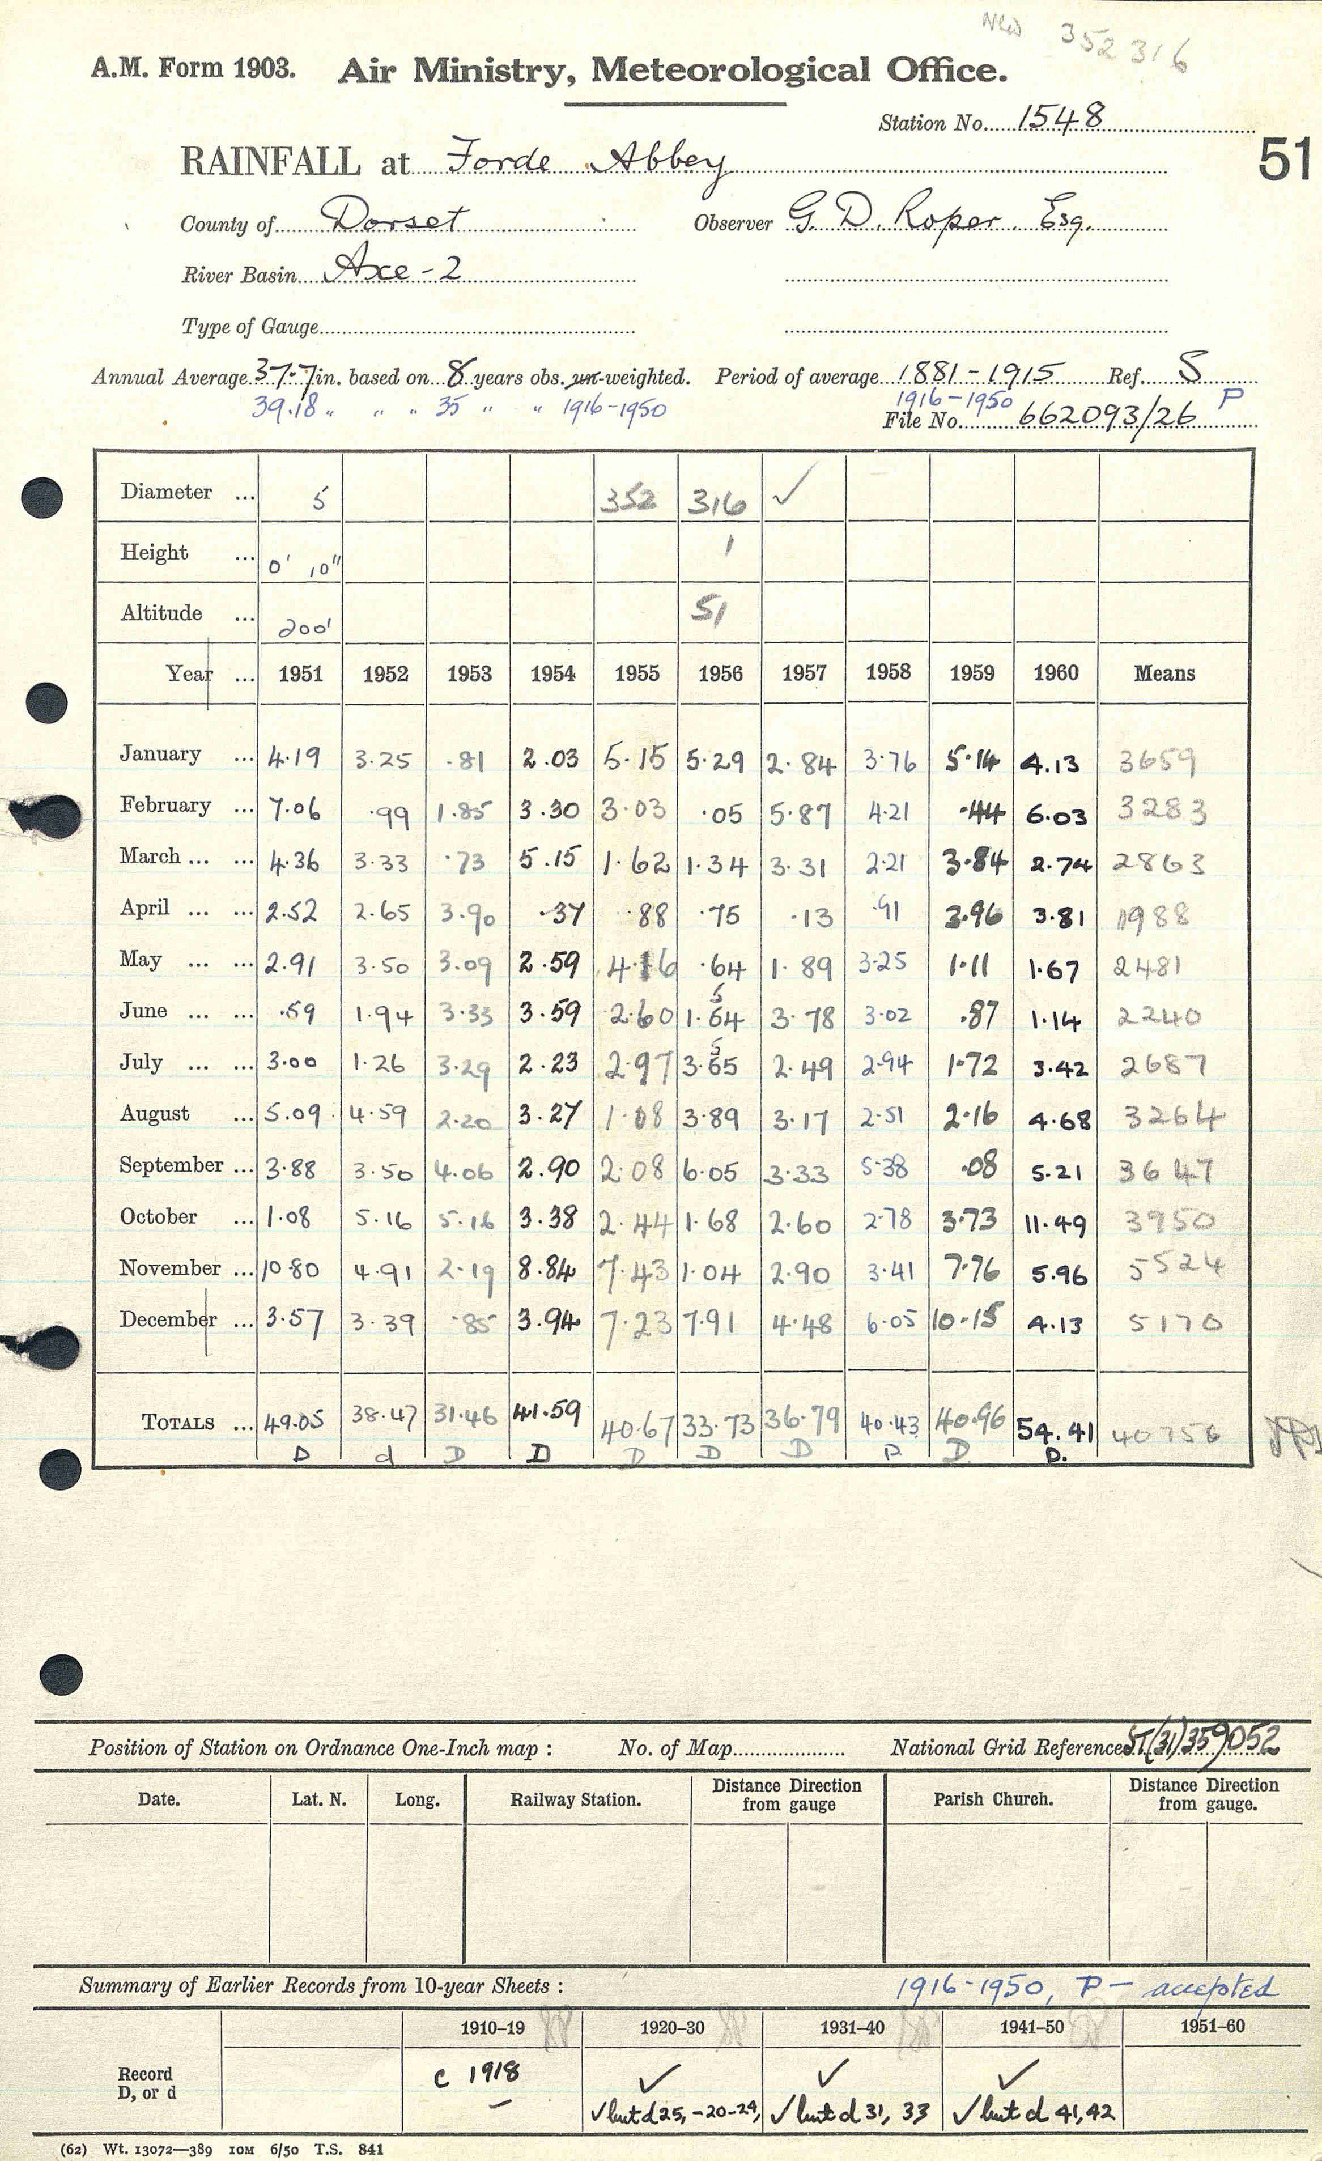 New 352316
A.M. Form 1903. Air Ministry, Meteorological Office.
Station No. 1548
51
RAINFALL at Forde Abbey
County of Dorset Observer G. D. Roper. Esq.
River Basin Axe-2
Type of Gauge
Annual Average 37.7 in. based on 8 years obs. un-weighted. Period of average 1881-1915 Ref. S
39.18 " " " 35 " " 1916-1950 1916-1950 P
File No. 662093/26
Diameter ... 5 352 316 ✓
Height ... 0' 10" 1
Altitude ... 200' 51
Year ... 1951 1952 1953 1954 1955 1956 1957 1958 1959 1960 Means
January ... 4.19 3.25 .81 2.03 5.15 5.29 2.84 3.76 5.14 4.13 3659
February ... 7.06 .99 1.85 3.30 3.03 .05 5.87 4.21 .44 6.03 3283
March ... ... 4.36 3.33 .73 5.15 1.62 1.34 3.31 2.21 3.84 2.74 2863
April ... ... 2.52 2.65 3.90 .37 .88 .75 .13 .91 3.96 3.81 1988
May ... ... 2.91 3.50 3.09 2.59 4.16 .64 1.89 3.25 1.11 1.67 2481
June ... ... .59 1.94 3.33 3.59 2.60 1.54 3.78 3.02 .87 1.14 2240
July ... ... 3.00 1.26 3.29 2.23 2.97 3.55 2.49 2.94 1.72 3.42 2687
August ... 5.09 4.59 2.20 3.27 1.08 3.89 3.17 2.51 2.16 4.68 3264
September ... 3.88 3.50 4.06 2.90 2.08 6.05 3.33 5.38 .08 5.21 3647
October ... 1.08 5.16 5.16 3.38 2.44 1.68 2.60 2.78 3.73 11.49 3950
November ... 10.80 4.91 2.19 8.84 7.43 1.04 2.90 3.41 7.76 5.96 5524
December ... 3.57 3.39 .85 3.94 7.23 7.91 4.48 6.05 10.15 4.13 5170
TOTALS ... 49.05 38.47 31.46 41.59 40.67 33.73 36.79 40.43 40.96 54.41 40756
D d D D D D D P D D.
Position of Station on Ordnance One-Inch map : No. of Map National Grid Reference ST(31)359052
Date. Lat. N. Long. Railway Station. Distance Direction from gauge Parish Church. Distance Direction from gauge.
Summary of Earlier Records from 10-year Sheets : 1916-1950, P - accepted
1910-19 1920-30 1931-40 1941-50 1951-60
Record D, or d c 1918 ✓ ✓ ✓
– ✓ but d 25, -20-24, ✓ but d 31, 33 ✓ but d 41, 42
(62) Wt. 13072—389 10M 6/50 T.S. 841